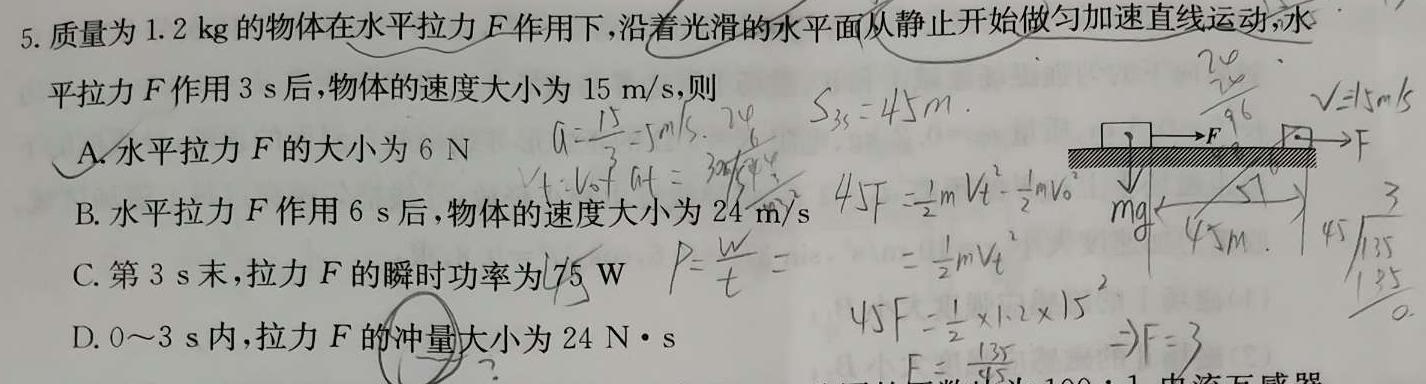 5. 质量为 1.2 kg 的物体在水平拉力 F 作用下,沿着光滑的水平面从静止开始做匀加速直线运动,水
平拉力 F 作用 3 s 后,物体的速度大小为 15 m/s,则
S₃ₛ=45m.
24
24
96
V=15m/s
A. 水平拉力 F 的大小为 6 N
a=15/3=5m/s.
24
F
F
Vt=V₀+at=30m/s
B. 水平拉力 F 作用 6 s 后,物体的速度大小为 24 m/s
45F=½mVt²-½mV₀²
mg
45m.
3
45 135
135
0
C. 第 3 s 末,拉力 F 的瞬时功率为 75 W
P=W/t=
=½mVt²
D. 0～3 s 内,拉力 F 的冲量大小为 24 N·s
?
45F=½×1.2×15²
F=135/45
⇒F=3